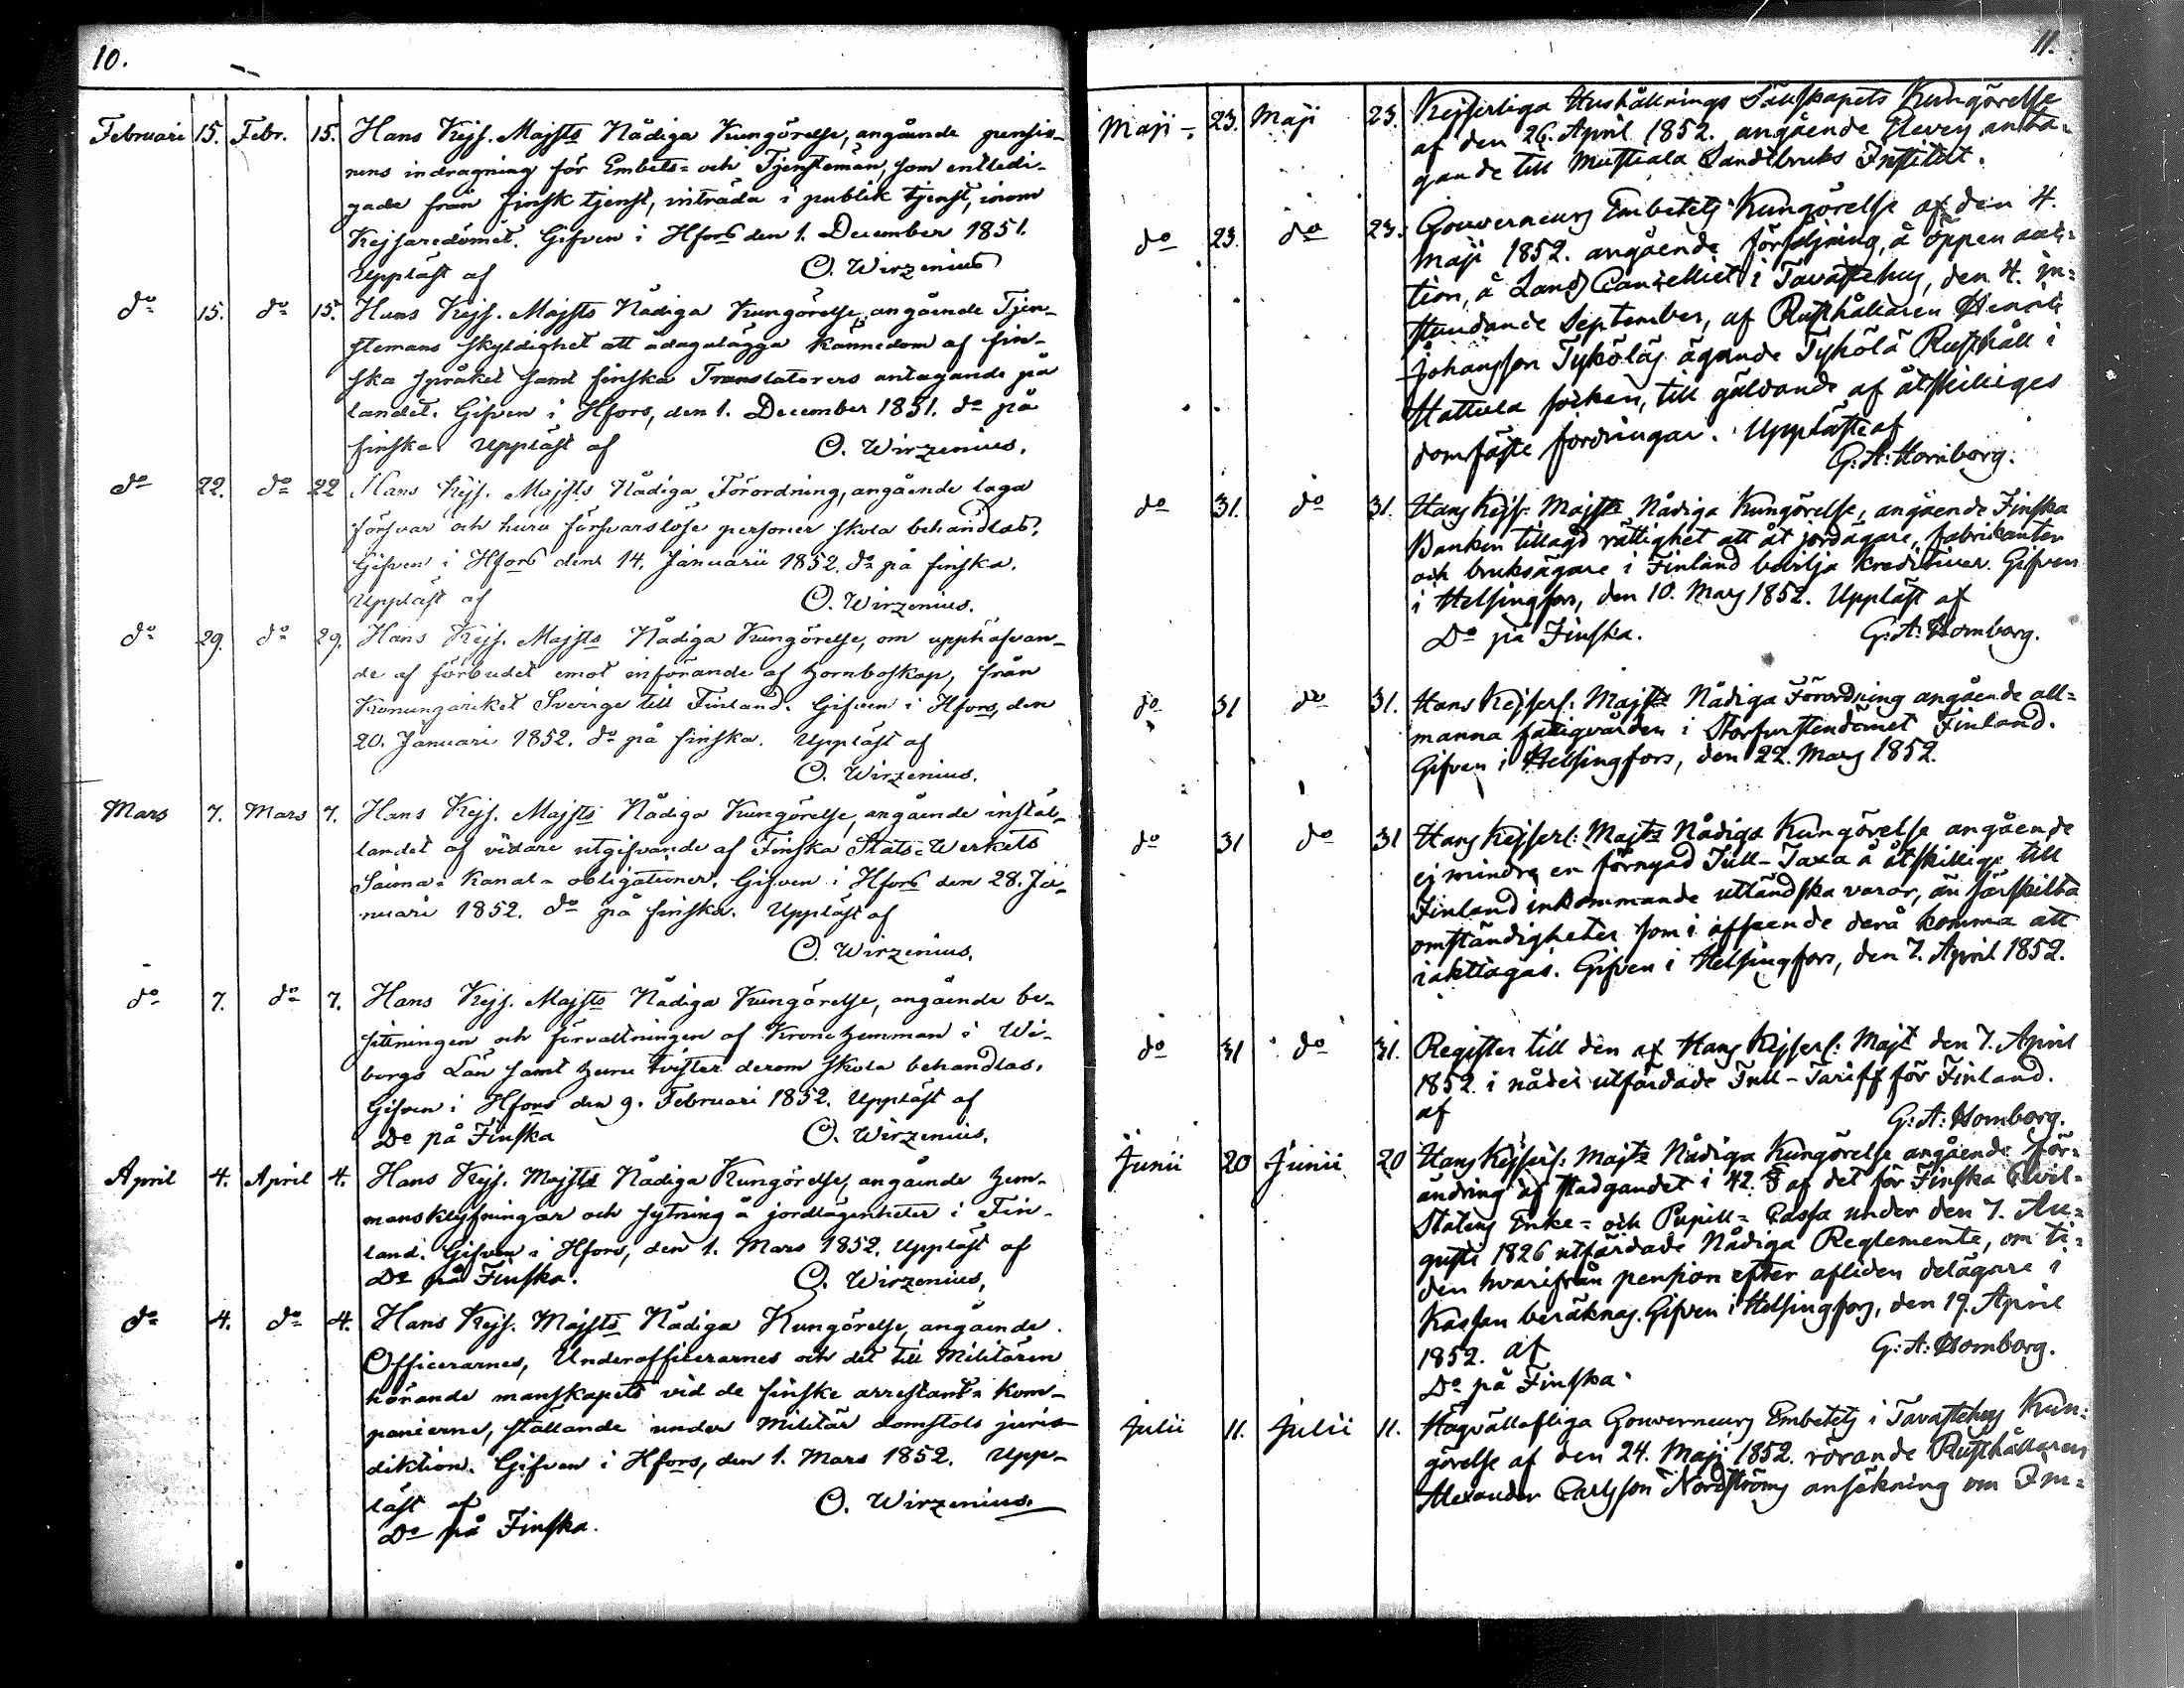 10.
Februari 15. Febr. 15. Hans Kejs. Majsts Nådiga Kungörelse, angående pensio-
nens indragning för Embets- och Tjenstemän, som entledi-
gade från finsk tjenst, inträda i publik tjenst, inom
Kejsaredömet. Gifven i Hfors den 1. December 1851.
Uppläst af O. Wirzenius
do 15. do 15. Hans Kejs. Majsts Nådiga Kungörelse, angående Tjen-
stemans skyldighet att ådagalägga kännedom af fin-
ska språket samt finska Translatorers antagande på
landet. Gifven i Hfors, den 1. December 1851. do på
finska Uppläst af O. Wirzenius.
do 22. do 22 Hans Kejs. Majsts Nådiga Förordning, angående laga
försvar och huru försvarslöse personer skola behandlas.
Gifven i Hfors den 14. Januarii 1852. do på finska.
Uppläst af O. Wirzenius.
do 29. do 29. Hans Kejs. Majsts Nådiga Kungörelse, om upphäfvan-
de af förbudet emot införande af hornboskap, från
Konungariket Sverige till Finland. Gifven i Hfors, den
20. Januari 1852. do på finska. Uppläst af
O. Wirzenius.
Mars 7. Mars 7. Hans Kejs. Majsts Nådiga Kungörelse, angående instäl-
landet af vidare utgifvande af Finska Stats-Werkets
Saima-Kanal-obligationer. Gifven i Hfors den 28. Ja-
nuari 1852. do på finska. Uppläst af
O. Wirzenius.
do 7. do 7. Hans Kejs. Majsts Nådiga Kungörelse, angående be-
sittningen och förvaltningen af Kronohemman i Wi-
borgs Län samt huru tvister derom skola behandlas.
Gifven i Hfors den 9. Februari 1852. Uppläst af
Do på Finska O. Wirzenius.
April 4. April 4. Hans Kejs. Majsts Nådiga Kungörelse, angående hem-
mansklyfningar och sytning å jordlägenheter i Fin-
land. Gifven i Hfors, den 1. Mars 1852. Uppläst af
Do på Finska. O. Wirzenius,
do 4. do 4. Hans Kejs. Majsts Nådiga Kungörelse, angående
Officerarnes, Underofficerarnes och det till Militären
hörande manskapets vid de finske arrestant-kom-
panierna, ställande under Militär domstols juris-
diktion. Gifven i Hfors, den 1. Mars 1852. Upp-
läst af O. Wirzenius.
Do på Finska.
11.
Maji 23. Maji 23. Kejserliga Hushållnings Sällskapets Kungörelse
af den 26. April 1852. angående Elevers anta-
gande till Mustiala Landtbruks Institut.
do 23. do 23. Gouverneurs Embetets Kungörelse af den 4.
Maji 1852. angående försäljning, å öppen auk-
tion, å Lands Cancelliet i Tavastehus, den 4. in-
stundande September, af Rusthållaren Henrik
Johansson Tyköläs ägande Tykölä Rusthåll i
Hattula socken, till gäldande af åtskilliges
domfäste fordringar. Uppläste af
G: A: Hornborg.
do 31. do 31. Hans Kejs: Majsts Nådiga Kungörelse, angående Finska
Banken tillagd rättighet att åt jordägare, fabrikanter
och bruksägare i Finland bevilja kreditiver. Gifven
i Helsingfors, den 10. Mars 1852. Uppläst af
Do på Finska. G: A: Hornborg.
do 31 do 31. Hans Kejserl: Majsts Nådiga Förordning angående all-
männa fattigvården i Storfurstendömet Finland.
Gifven i Helsingfors, den 22. Mars 1852.
do 31 do 31 Hans Kejserl: Majts Nådiga Kungörelse angående
ej mindre en förnyad Tull-Taxa å åtskillige till
Finland inkommande utländska varor, än särskilta
omständigheter som i afseende derå komma att
iakttagas. Gifven i Helsingfors, den 7. April 1852.
do 31 do 31. Register till den af Hans Kejserl: Majt den 7. April
1852. i nåder utfärdade Tull-Tariff för Finland.
af G: A: Hornborg.
Junii 20 Junii 20 Hans Kejserl: Majts Nådiga Kungörelse angående för-
ändring af stadgandet i 42. § af det för Finska Civil-
Statens Enke- och Pupill-Cassa under den 7. Au-
gusti 1826 utfärdade Nådiga Reglemente, om ti-
den hvarifrån pension efter afliden delägare i
Kassan beräknas. Gifven i Helsingfors, den 19. April
1852. af G: A: Hornborg.
Do på Finska.
Julii 11. Julii 11. Högvällofliga Gouverneurs Embetets i Tavastehus Kun-
görelse af den 24. Maji 1852. rörande Rusthållaren
Alexander Carlsson Nordströms ansökning om Im-